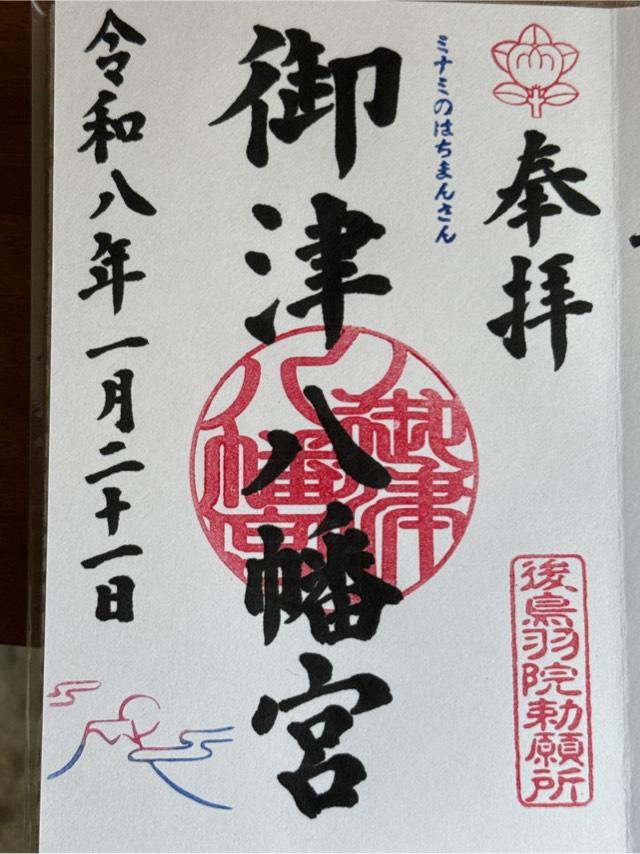 奉拝
後鳥羽院勅願所
ミナミのはちまんさん
御津八幡宮
御津
八幡宮
令和八年一月二十一日